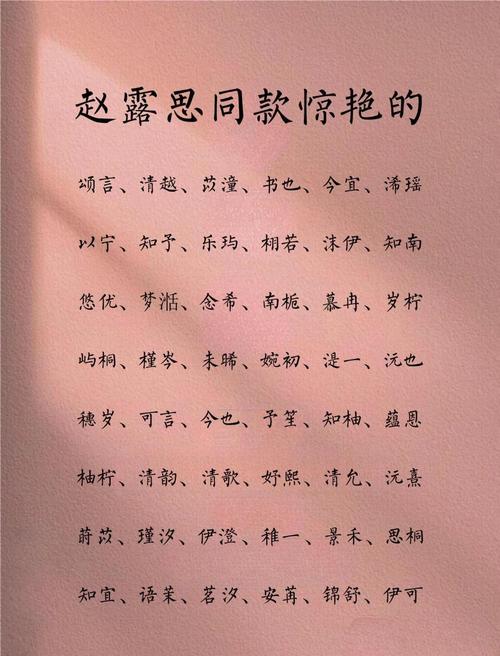 赵露思同款惊艳的
颂言、清越、苡潼、书也、今宜、浠瑶
以宁、知予、乐玙、栩若、沫伊、知南
悠优、梦湉、念希、南栀、慕冉、岁柠
屿桐、槿岑、未晞、婉初、湜一、沅也
穗岁、可言、今也、予笙、知柚、蕴恩
柚柠、清韵、清歌、妤熙、清允、沅熹
莳苡、瑾汐、伊澄、稚一、景禾、思桐
知宜、语茉、茗汐、安苒、锦舒、伊可